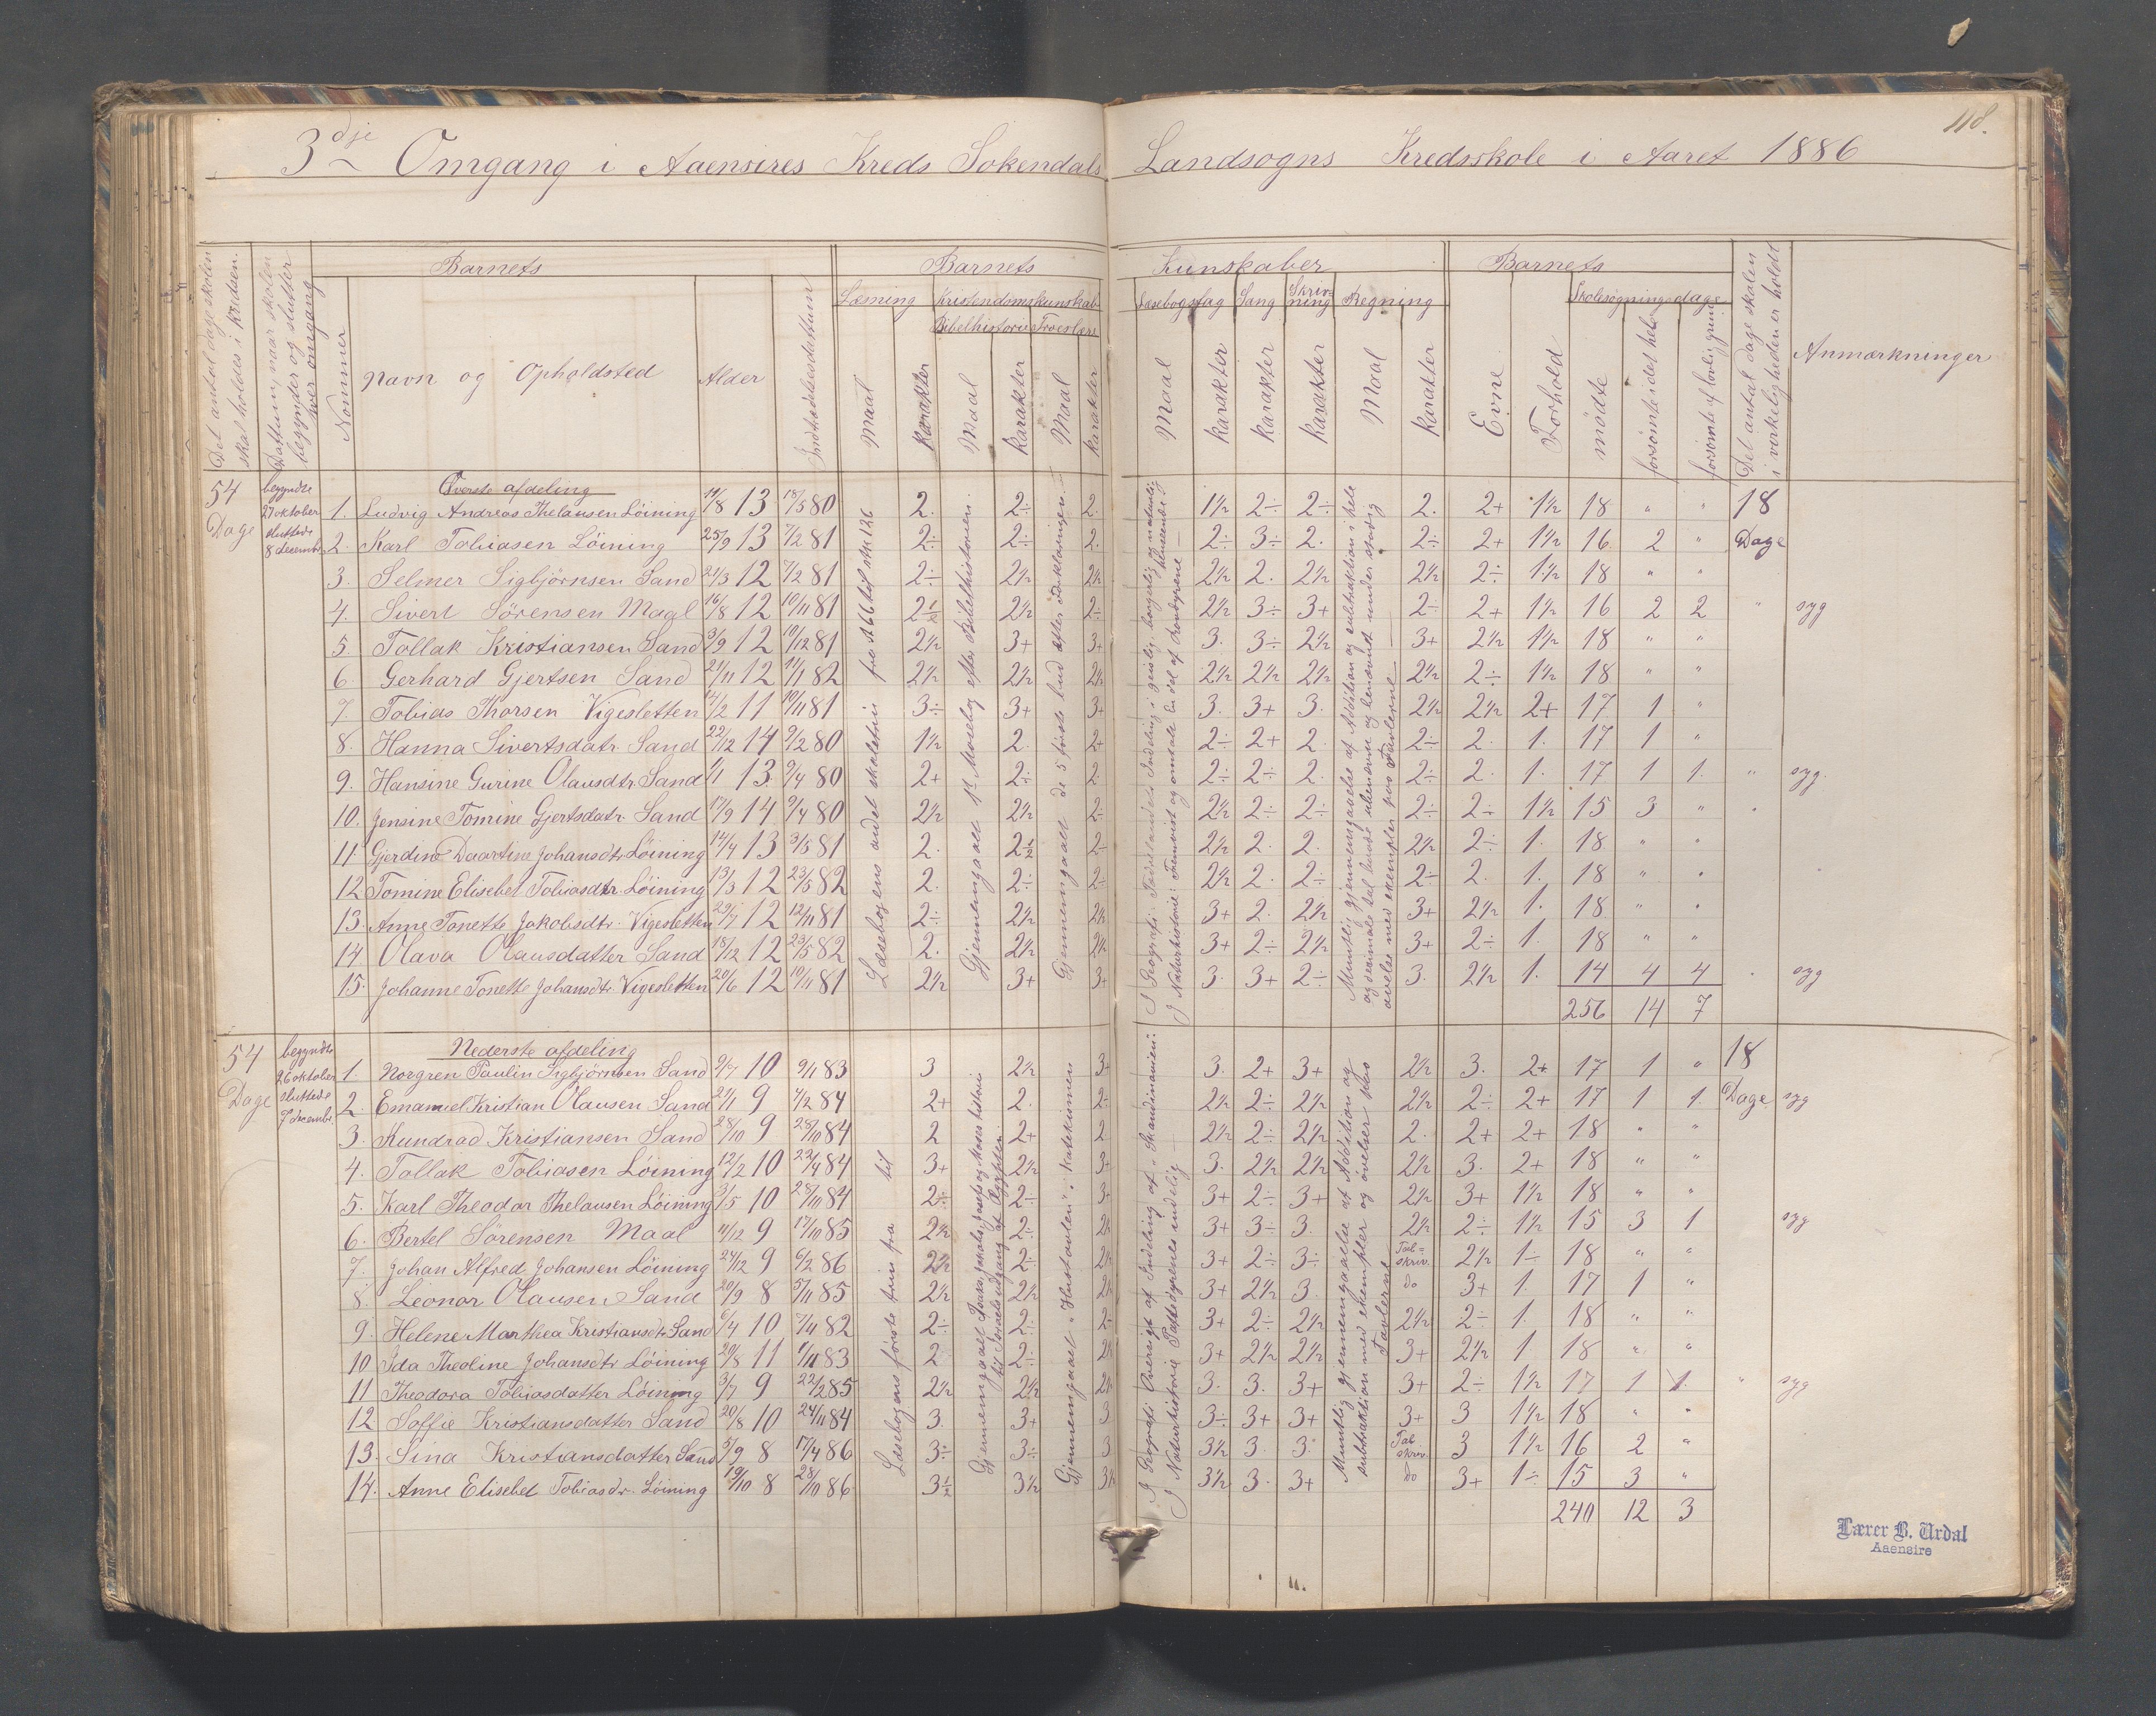 118.
3dje Omgang i Aaensires Kreds Sokendals Landsogns Kredsskole i Aaret 1886
Det antal dage skolen skal holdes i kredsen.
Dattum, naar skolen begynder og slutter hver omgang
Barnets
Nommer
Navn og Opholdsted
Alder
Indtrædelsesdattum
Barnets Kunskaber
Læsning
Maal
Karakter
Kristendomskunskab
Bibelhistorie
Maal
Karakter
Troeslære
Maal
Karakter
Læsebogsfag
Maal
Karakter
Sang
Karakter
Skrivning
Karakter
Regning
Maal
Karakter
Barnets
Evne
Forhold
Skolesøgningsdage
mødte
forsømte i det hele
forsømte af lovlig grund
Det antal dage skolen i virkeligheden er holdt
Anmærkninger
Øverste afdeling
54 Dage begyndte 27 oktober sluttede 8 decembr.
1. Ludvig Andreas Thelausen Löining 11/8 13 18/5 80 2. 2÷ 2. 1½ 2÷ 2÷ 2. 2+ 1½ 18 " " 18 Dage
2. Karl Tobiasen Löining 25/9 13 7/2 81 2÷ 2÷ 2. 2÷ 3÷ 2. 2÷ 2+ 1½ 16. 2 "
3. Selmer Sigbjörnsen Sand 21/3 12 7/2 81 2÷ 2½ 2½ 2½ 2. 2½ 2½ 2÷ 1½ 18 " "
4. Sivert Sörensen Maal 16/8 12 10/11 81 2½ 2½ 2÷ 2½ 3÷ 3+ 2÷ 2+ 1½ 16 2 2 " syg
5. Tollak Kristiansen Sand 3/9 12 10/12 81 2½ 3+ 3+ 3. 3÷ 2½ 3+ 2½ 1½ 18 " "
6. Gerhard Gjertsen Sand 21/11 12 11/1 82 2½ 2½ 2½ 2½ 2½ 2½ 2½ 2÷ 1½ 18 " "
7. Tobias Thorsen Vigesletten 14/2 11 10/11 81 3÷ 3+ 3+ 3. 3+ 3. 2½ 2½ 2+ 17 1 "
8. Hanna Sivertsdatr. Sand 22/12 14 9/2 80 1½ 2. 2+ 2÷ 2+ 2. 2÷ 2. 1. 17 1 "
9. Hansine Gurine Olausdtr. Sand 1/1 13. 9/4 80 2+ 2÷ 2. 2÷ 2÷ 2. 2÷ 2. 1. 17 1 1. " syg.
10. Jensine Tomine Gjertsdatr. Sand 17/9 14 9/4 80 2½ 2½ 2÷ 2½ 2÷ 2÷ 2÷ 2÷ 1½ 15 3 "
11 Gjerdine Daartine Johansdtr Löining 14/4 13 3/5 81 2. 2½ 2÷ 2½ 2. 2. 2½ 2÷ 1. 18 " "
12 Tomine Elisebet Tobiasdtr. Löining 13/3 12 23/5 82 2. 2÷ 2÷ 2½ 2. 2÷ 2÷ 2. 1. 18 " "
13. Anne Tonette Jakobsdtr. Vigesletten 29/7 12 12/11 81 2÷ 2½ 2½ 3+ 2. 2½ 3+ 2½ 1. 18 " "
14. Olava Olausdatter Sand 18/12 12 23/5 82 2. 2½ 2½ 3+ 2÷ 2½ 3+ 2÷ 1. 18 " "
15. Johanne Tonette Johansdtr. Vigesletten 20/6 12 10/11 81 2½ 3+ 3+ 3. 3+ 2÷ 3. 2½ 1. 14 4 4 syg
256 14 7
Læsebogens andet skoletrin fra s. 66 til stk. 126
Gjennemgaaet 1ste Mosebog efter Bibelhistorien.
Gjennemgaaet de 5 første bud efter Forklaringen.
Nederste afdeling
54 Dage begyndte 26 oktober sluttede 7 decembr.
1. Norgren Paulin Sigbjörnsen Sand 9/7 10 9/1 83 3 2½ 3+ 3. 2+ 3+ 2½ 3. 2+ 17 1 " 18 Dage
2 Emanuel Kristian Olausen Sand 21/1 9 4/2 84 2+ 2. 2÷ 2½ 2÷ 2½ 2½ 2÷ 2+ 17 1 1. syg
3. Kundrad Kristiansen Sand 28/10 9 28/10 84 2 2+ 2 2½ 2÷ 2½ 2. 2+ 2+ 18 " "
4. Tollak Tobiasen Löining 12/2 10 22/4 84 3+ 2½ 3+ 3. 2½ 2½ 2½ 3. 2+ 18 " "
5. Karl Theodor Thelausen Löining 3/5 10 28/10 84 2÷ 2÷ 3+ 3+ 2÷ 3+ 2½ 3+ 1½ 18 " "
6. Bertel Sörensen Maal 11/12 9 17/10 85 2½ 2÷ 2½ 3+ 3÷ 3. 2½ 2÷ 1½ 15 3 1 syg
7. Johan Alfred Johansen Löining 24/12 9 6/2 86 2½ 2÷ 2½ 3+ 2÷ 3÷ Tal=skriv. 2½ 1÷ 18 " "
8. Leonar Olausen Sand 20/9 8 5/11 85 2½ 2½ 2½ 3+ 2½ 3. do 3+ 1. 17 1 "
9. Helene Marthea Kristiansdtr Sand 6/4 10 7/11 82 2÷ 2÷ 2÷ 3+ 2÷ 2½ 2½ 2÷ 1. 18 " "
10 Ida Theoline Johansdtr Löining 20/8 11 1/11 83 2 2÷ 2½ 3+ 2½ 2½ 3+ 2½ 1 18 " "
11 Theodora Tobiasdatter Löining 3/7 9 22/2 85 2½ 2½ 2½ 3. 3. 3+ 3+ 2÷ 1½ 17 1 1. " syg
12 Soffie Kristiansdatter Sand 20/8 10 24/11 84 3 3+ 3 3÷ 3+ 3+ 3+ 3 1½ 18 " "
13. Sina Kristiansdatter Sand 5/9 8 17/4 86 3÷ 3÷ 3 3½ 3. 3. Tal skriv. 3 1½ 16 2 "
14. Anne Elisebet Tobiasdr. Löining 19/10 8 28/10 86 3½ 3½ 3½ 3½ 3. 3+ do 3+ 1÷ 15 3 "
240 12 3
Læsebogens første trin fra til
Gjennemgaaet Isaks, Jakobs, Josefs og Moses historie til Israels udgang af Ægypten.
Gjennemgaaet "Hustavlen" i katekismen
I Geografi Oversigt af Indeling af "Skandinavien"
I Naturhistorie Pattedyrenes indelig
Mundtlig gjennemgaaelse af Addition og subtraktion med eksempler og øvelser paa Tavlerne
Lærer B. Urdal
Aaensire